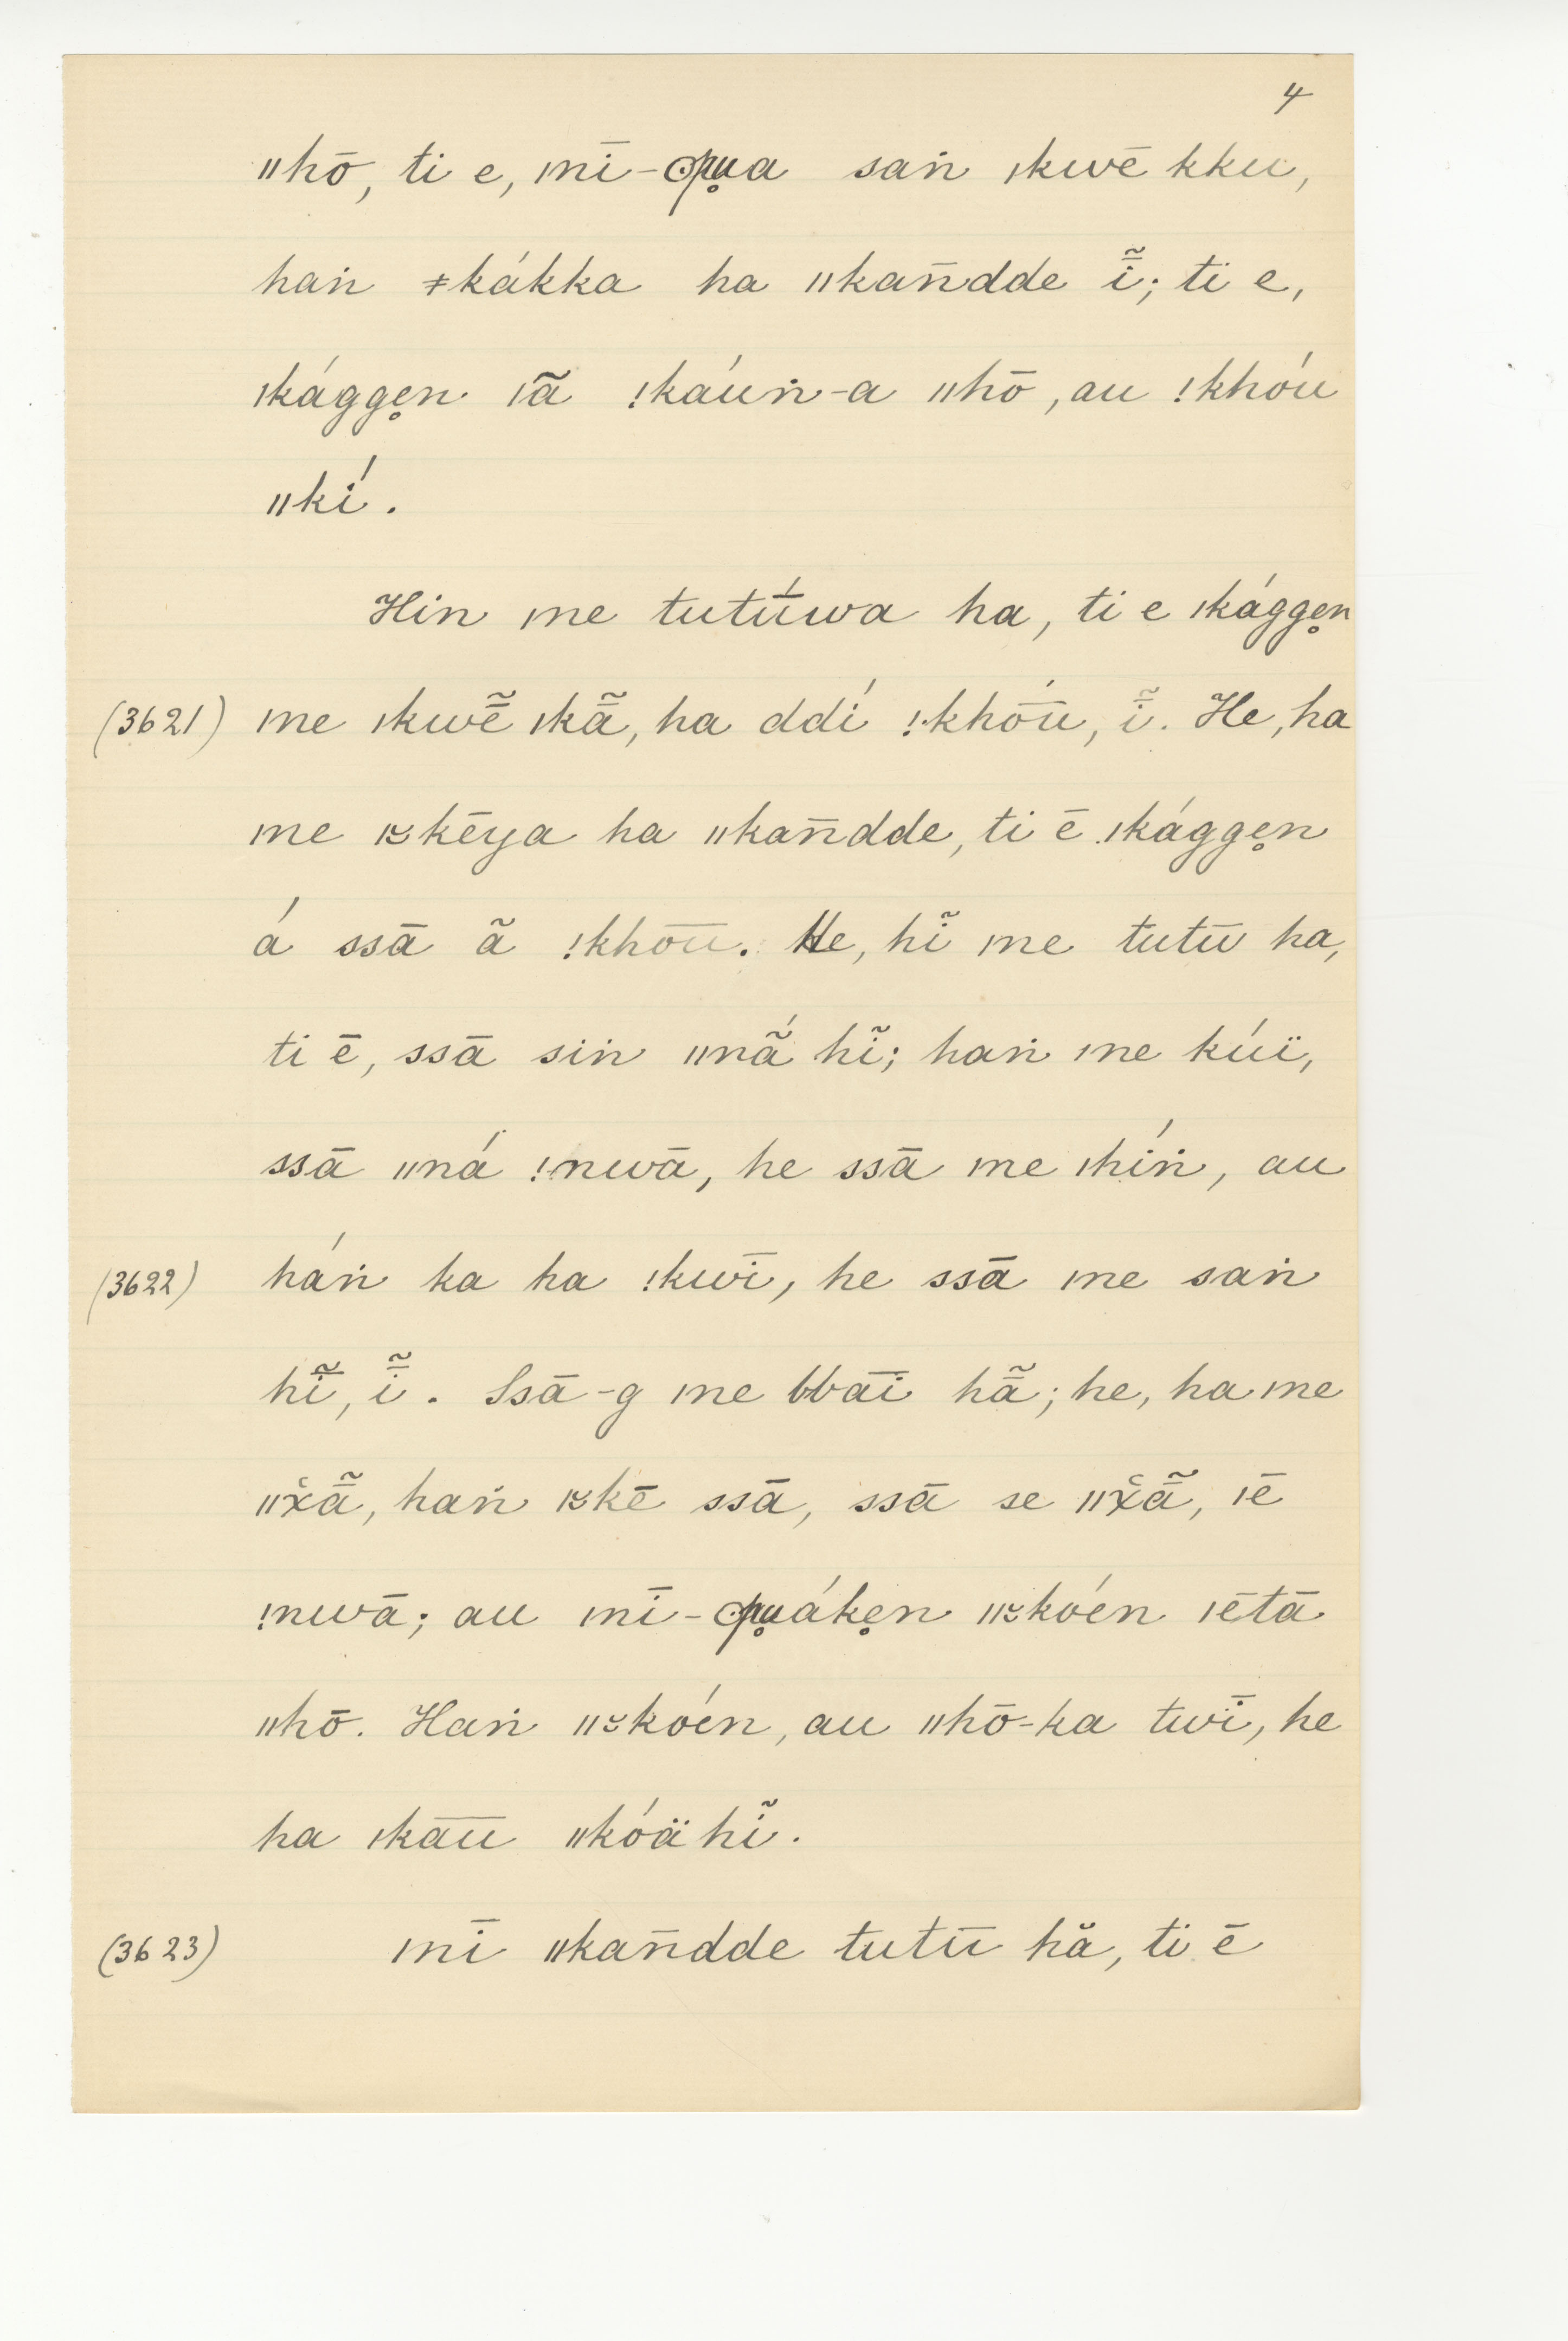 4
ǁhō, ti e, ǀnī-ʘpu̥a saṅ ǀkwē kku,
haṅ ǂkákka ha ǁkan̄dde ī̃; ti e,
ǀkágge̥n ǀā̃ ǃkáuṅ-a ǁhō, au ǃkhóu
ǁkí.
Hin ǀne tutū́wa ha, ti e ǀkágge̥n
(3621) ǀne ǀkwē̃ ǀkā̃, ha ddí ǃkhṓū, ī̃. He, ha
ǀne ǀꜿkēya ha ǁkan̄dde, ti ē ǀkágge̥n
á ssā ã ǃkhōū. He, hĩ ǀne tutū ha,
ti ē, ssā siṅ ǁnā̃́ hĩ; haṅ ǀne kúï,
ssā ǁná ǃnwā, he ssā ǀne ǀhíṅ, au
(3622) háṅ ka ha ǃkwī, he ssā ǀne saṅ
hī̃, ī̃. Ssā-g ǀne bbāī hā̃; he, ha ǀne
ǁx̌ā̃, haṅ ǀꜿkē ssā, ssā se ǁx̌ā̃, ǀē
ǃnwā; au ǀnī-ʘpu̥áke̥n ǁꜿkóen ǀētā
ǁhō. Haṅ ǁꜿkóen, au ǁhō-ka twī, he
ha ǀkāū ǁkóä hĩ.
(3623) ǀnī ǁkan̄dde tutū hă, ti ē